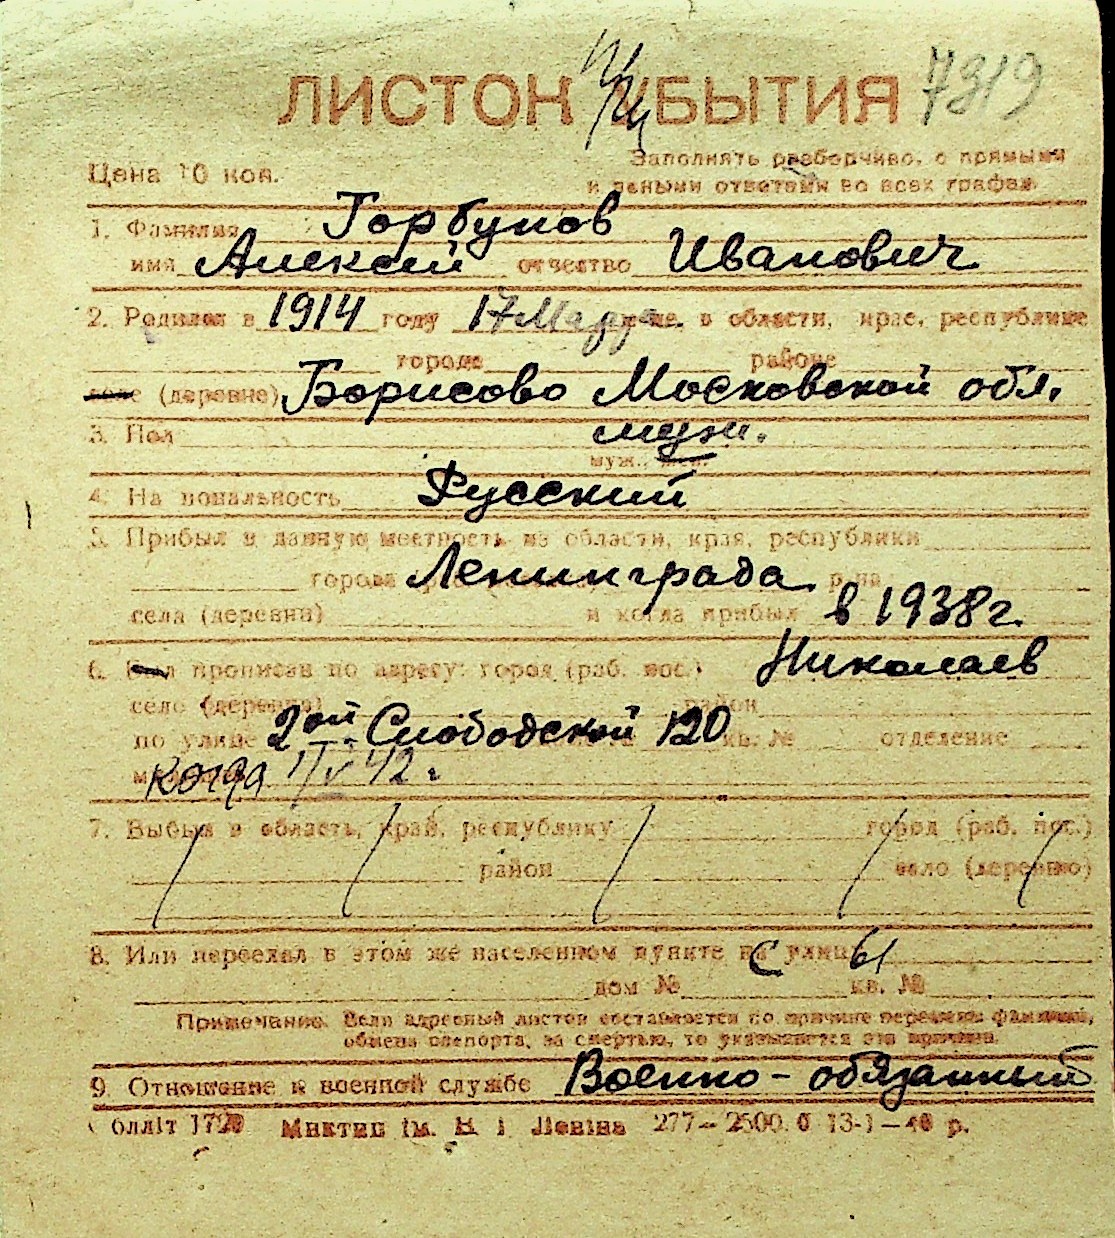 ЛИСТОК УБЫТИЯ 7919
Цена 10 коп.
Заполнять разборчиво, с прямыми
и ясными ответами во всех графах
1. Фамилия Горбунов
имя Алексей отчество Иванович
2. Родился в 1914 году 17 Марта в области, крае, республике
городе районе
селе (деревне) Борисово Московской обл.
3. Пол муж.
муж., жен.
4. Национальность Русский
5. Прибыл в данную местность из области, края, республики
города Ленинграда р-на
села (деревни) и когда прибыл в 1938 г.
6. Был прописан по адресу: город (раб. пос.) Николаев
село (деревня) район
по улице 2ой Слободской 120 кв. № отделение
когда 1/IV 42 г
7. Выбыл в область, край, республику город (раб. пос.)
район село (деревню)
8. Или переехал в этом же населенном пункте на улицу
дом № кв. №
Примечание. Если адресный листок составляется по причине перемены фамилии,
обмена паспорта, за смертью, то указывается эта причина.
9. Отношение к военной службе Военно-обязанный
277—2500. 13-1—40 р.